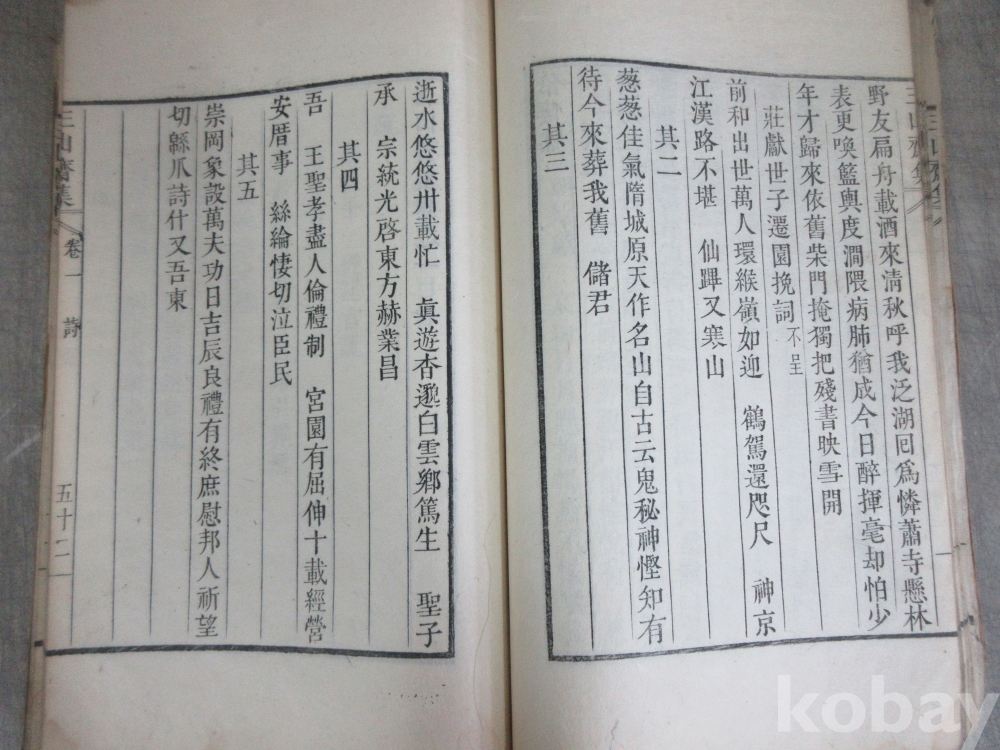 野友扁舟載酒來淸秋呼我泛湖回爲憐蕭寺懸林
表更喚籃輿度澗隈病肺猶成今日醉揮毫却怕少
年才歸來依舊柴門掩獨把殘書映雪開
莊獻世子遷園挽詞不呈
前和出世萬人環緱嶺如迎 鶴駕還咫尺 神京
江漢路不堪 仙蹕又寒山
其二
葱葱佳氣隋城原天作名山自古云鬼秘神慳知有
待今來葬我舊 儲君
其三
逝水悠悠卅載忙 眞遊杳邈白雲鄕篤生 聖子
承 宗統光啓東方赫業昌
其四
吾 王聖孝盡人倫禮制 宮園有屈伸十載經營
安厝事 絲綸悽切泣臣民
其五
崇岡象設萬夫功日吉辰良禮有終庶慰邦人祈望
切緜瓜詩什又吾東
三山齋集 卷一 詩 五十二
kobay